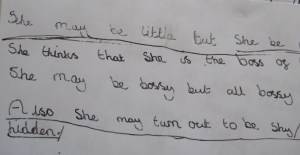 She may be little but She be
She thinks that She is the boss of
She may be bossy but all bossy
Also She may turn out to be Shy/
hidden/